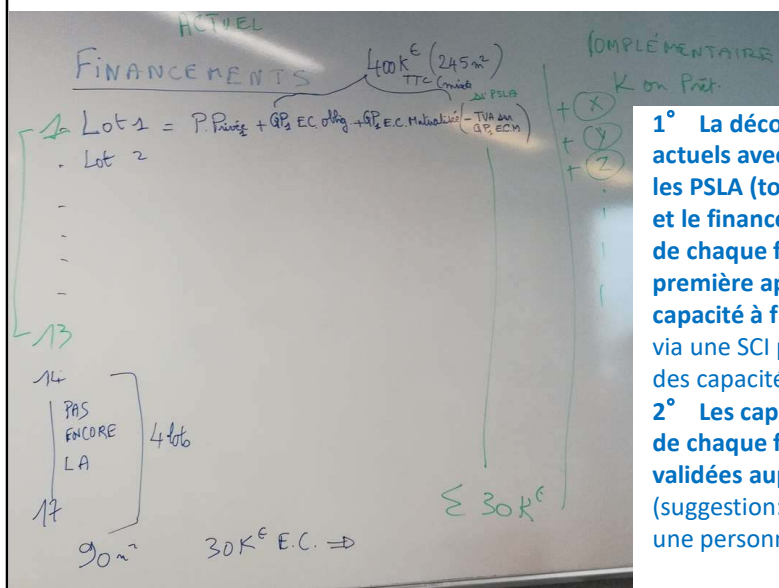 ACTUEL
FINANCEMENTS
400K€ (245 m²)
TTC
COMPLÉMENTAIRE
K on Prêt.
PSLA
1 - Lot 1 = P. Privée1 + QP1 E.C. oblig + QP1 E.C. Mutualisé (- TVA sur QP1 ECM)
+ X
. Lot 2
+ Y
+ Z
13
14
PAS
ENCORE
LA
4 lots
17
90 m²
30K€ E.C. ⇒
Σ 30K€
1° La déco
actuels avec
les PSLA (to
et le finance
de chaque f
première ap
capacité à f
via une SCI
des capacité
2° Les cap
de chaque f
validées aup
(suggestion:
une personn